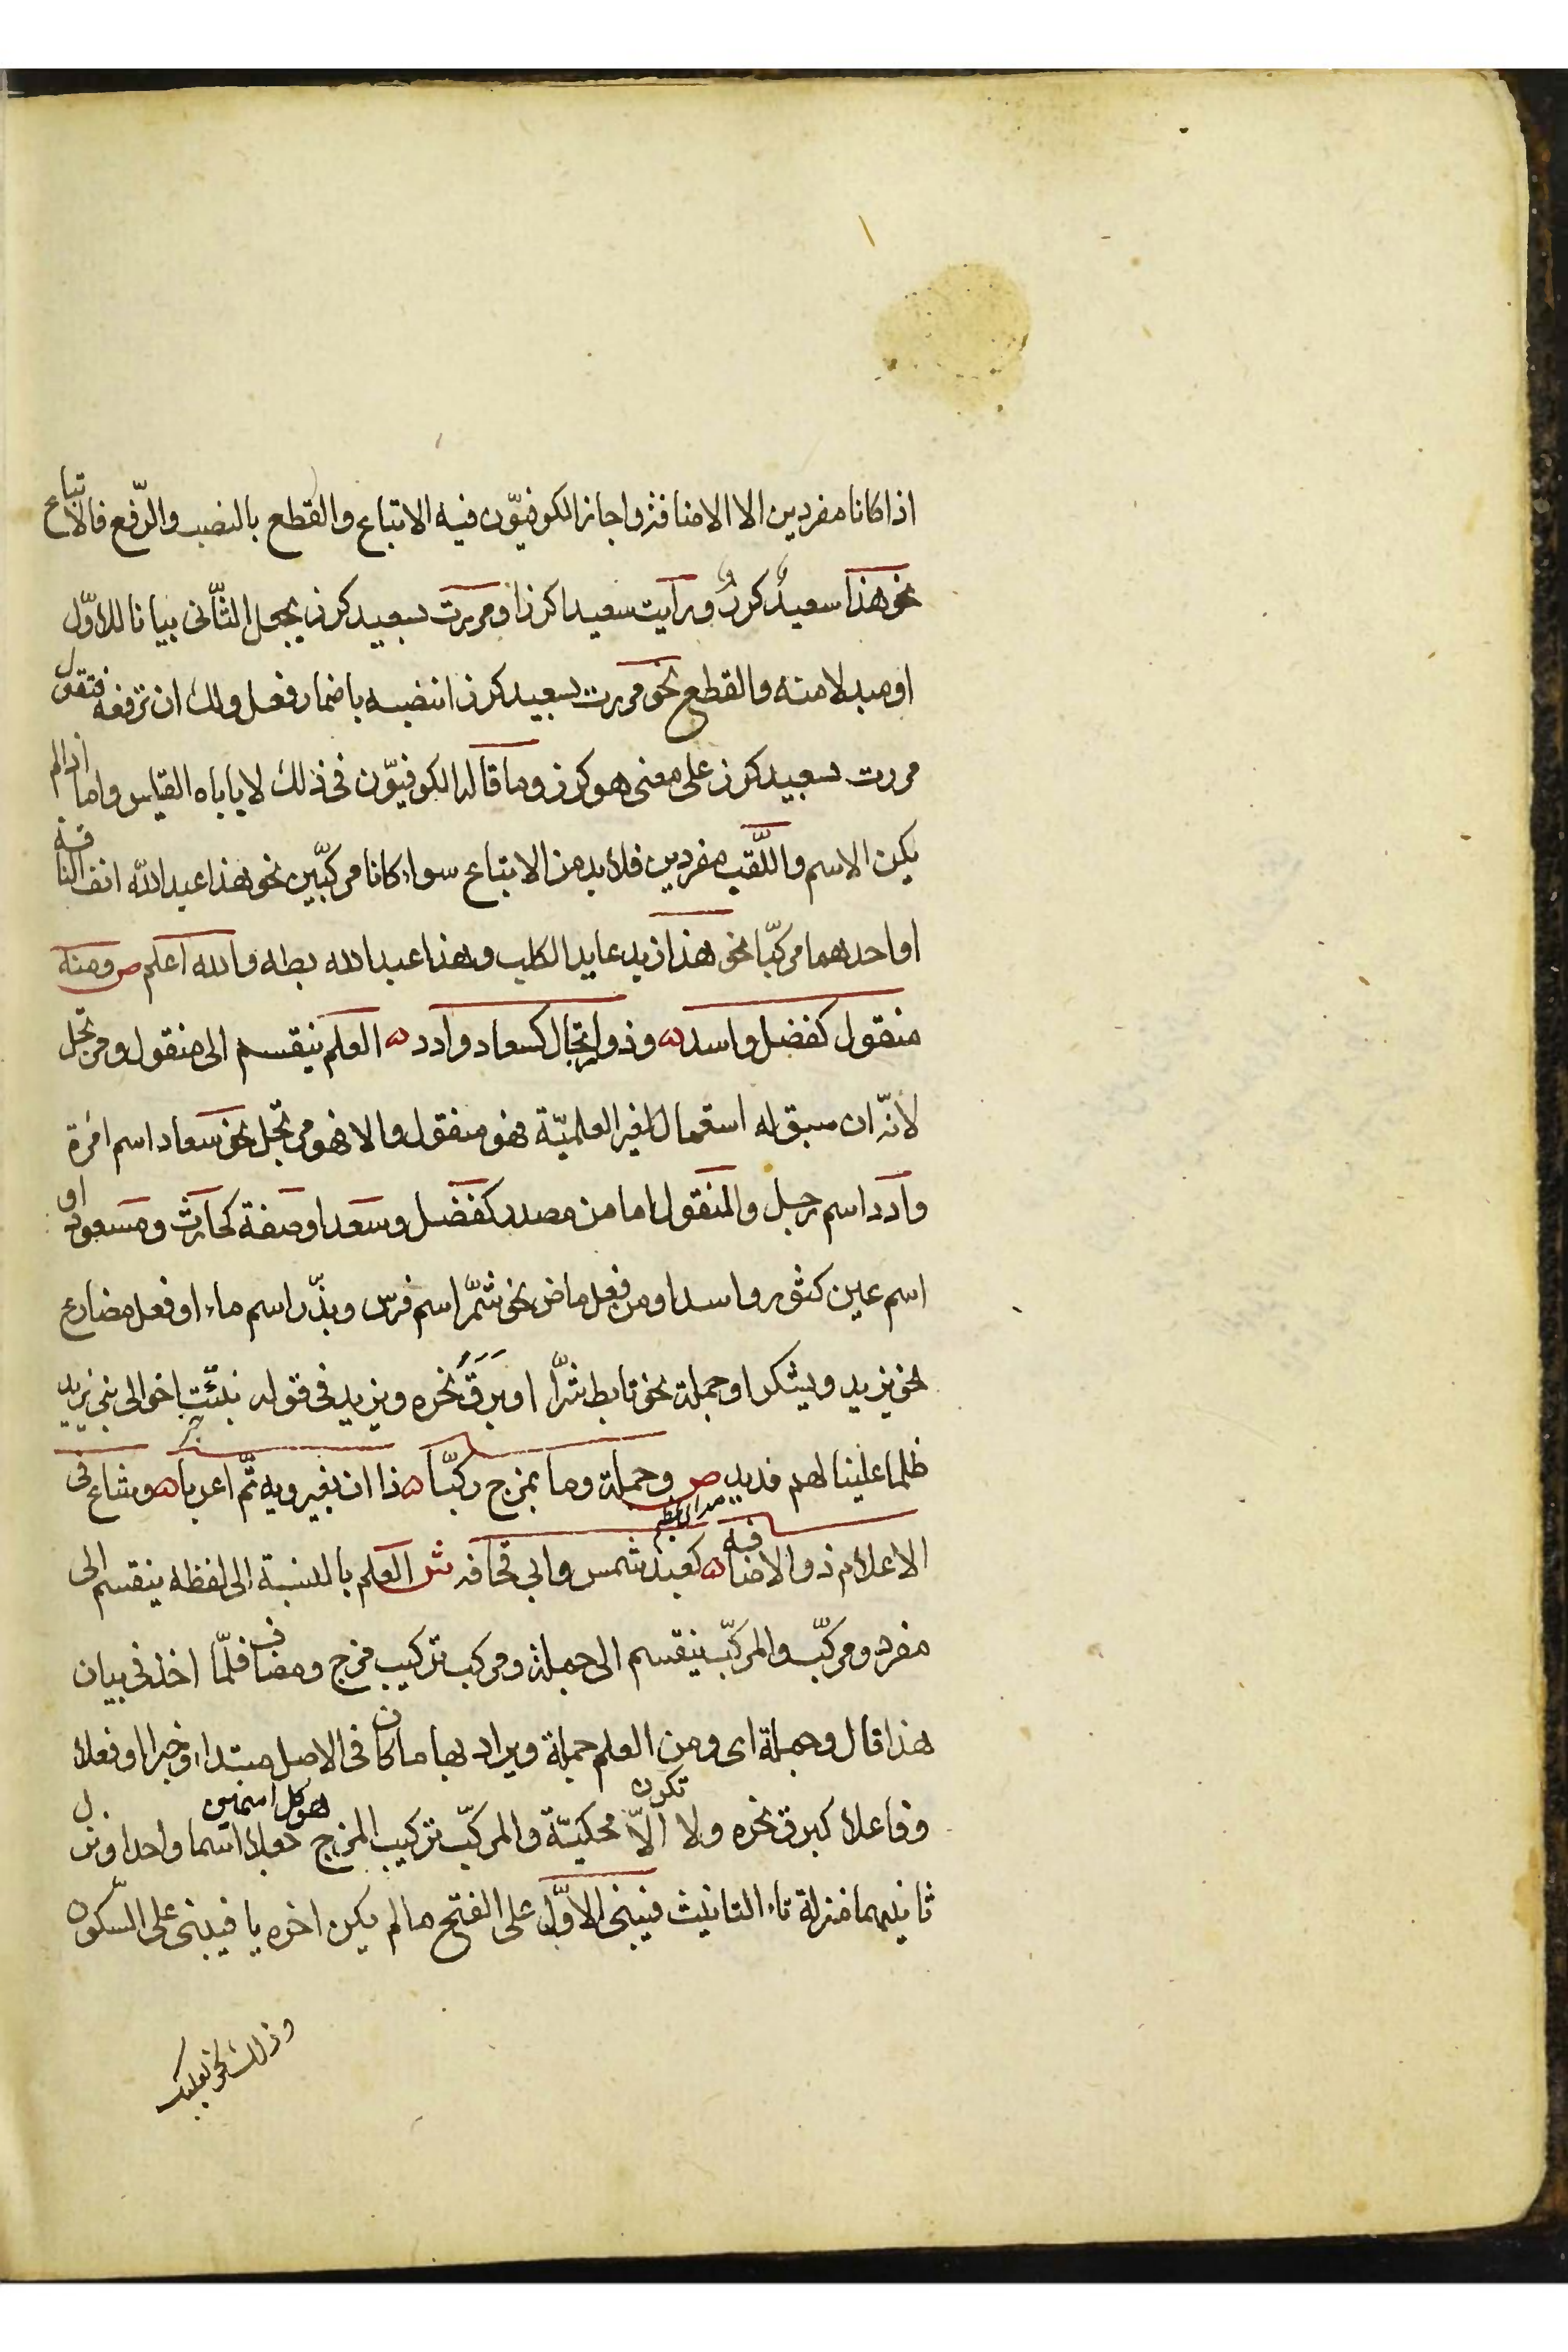 اذا كانا مفردين الا الاضافة واجاز الكوفيّون فيه الاتباع والقطع بالنصب والرّفع فالاتباع
نحو هذا سعيدٌ كرزٌ ورايت سعيدا كرزا ومررت بسعيد كرز بجعل الثّانى بيانا للاوّل
او بدلا منه والقطع نحو مررت بسعيد كرزا تنصبه باضمار فعل ولك ان ترفعه فتقول
مررت بسعيد كرز على معنى هو كرز وما قاله الكوفيّون فى ذلك لا ياباه القياس واما اذا لم
يكن الاسم واللّقب مفردين فلا بد من الاتباع سواء كانا مركّبين نحو هذا عبد اللّه انف الناقة
او احدهما مركّبا نحو هذا زيد عايد الكلب وهذا عبد الله بطه والله اعلم ص ومنه
منقول كفضل واسد ۵ وذو ارتجال كسعاد وادد ۵ العلم ينقسم الى منقول ومرتجل
لانّه ان سبق له استعمال لغير العلميّة فهو منقول والا فهو مرتجل نحو سعاد اسم امرة
وادد اسم رجل والمنقول اما من مصدر كفضل وسعد او صفة كحارث ومسعود او
اسم عين كثور واسد او من فعل ماض نحو شمّر اسم فرس وبذّر اسم ماء او فعل مضارع
نحو يزيد ويشكر او جملة نحو تابط شرّا او بَرَقَ نحره ويزيد فى قوله نبئت اخوالى بنى يزيد
ظلما علينا لهم فديد ص وجملة وما بمزج ركّبا ۵ ذا ان بغير ويه تمّ اعربا ۵ وشاع فى
الاعلام ذو الاضافه ۵ كعبد شمس وابى قحافه ش العلم بالنسبة الى لفظه ينقسم الى
مفرد ومركّب والمركّب ينقسم الى جملة ومركب تركيب مزج ومضاف فلمّا اخذ فى بيان
هذا قال وجملة اى ومن العلم جملة ويراد بها ما كان فى الاصل مبتدا وخبرا او فعلا
وفاعلا كبرق نحره ولا تكون الاّ محكيّة والمركّب تركيب المزج هو كل اسمين جعلا اسما واحدا ونزل
ثانيهما منزلة تاء التانيث فيبنى الاوّل على الفتح ما لم يكن اخره يا فيبنى على السّكون
وذلك نحو بعلبك